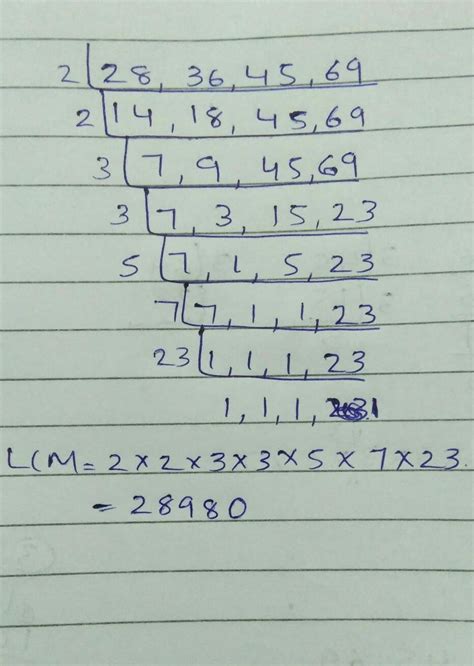 2 28, 36, 45, 69
2 14, 18, 45, 69
3 7, 9, 45, 69
3 7, 3, 15, 23
5 7, 1, 5, 23
7 7, 1, 1, 23
23 1, 1, 1, 23
1, 1, 1, 1
LCM = 2 × 2 × 3 × 3 × 5 × 7 × 23.
= 28980